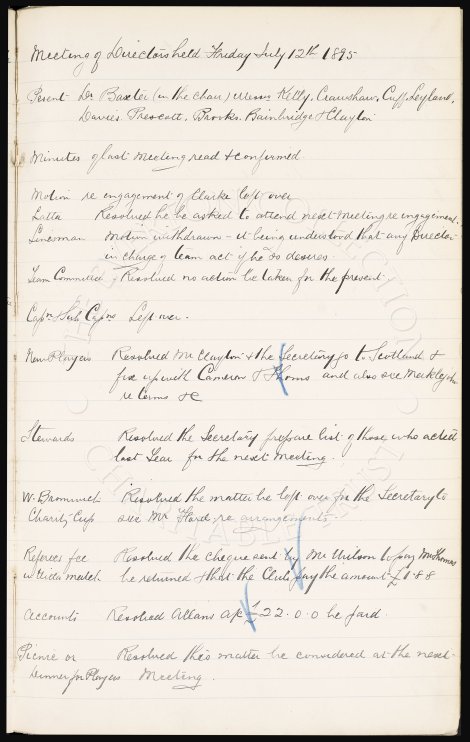 Meeting of Directors held Friday July 12th 1895
Present Dr Baxter (in the chair) Messrs Kelly, Crawshaw, Cuff, Leyland,
Davies. Prescott, Brooks. Bainbridge & Clayton
Minutes of last Meeting read & confirmed
Motion re engagement of Clarke left over
Latta Resolved he be asked to attend next meeting re engagement.
Linesman Motion withdrawn - it being understood that any Director
in charge of team act if he so desires.
Team Committee Resolved no action be taken for the present.
Capn & Sub Capns Left over.
New Players Resolved Mr Clayton & the Secretary go to Scotland &
fix up with Cameron & and also see
re terms &c
Stewards Resolved the Secretary prepare list of those who acted
last Year for the next Meeting.
W. Bromwich Resolved the matter be left over for the Secretary to
Charity Cup see Mr Ford re arrangements
Referees fee Resolved the cheque sent by Mr Wilson to pay Mr Thomas
match. be returned & that the Club pay the amount £1.8.8
Accounts Resolved Allans a/c £22.0.0 be paid.
Picnic or Resolved this matter be considered at the next
Dinner for Players Meeting.